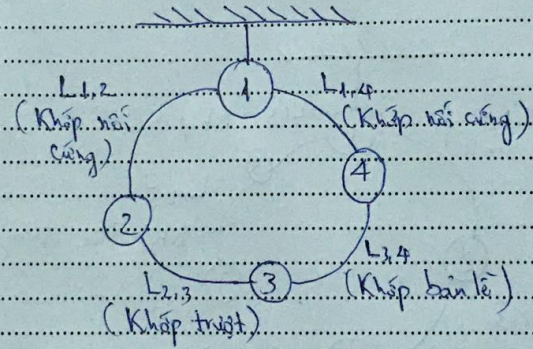 1
L1,2
(Khớp nối
cứng)
L1,4
(Khớp nối cứng)
4
2
L3,4
(Khớp bản lề)
3
L2,3
(Khớp trượt)